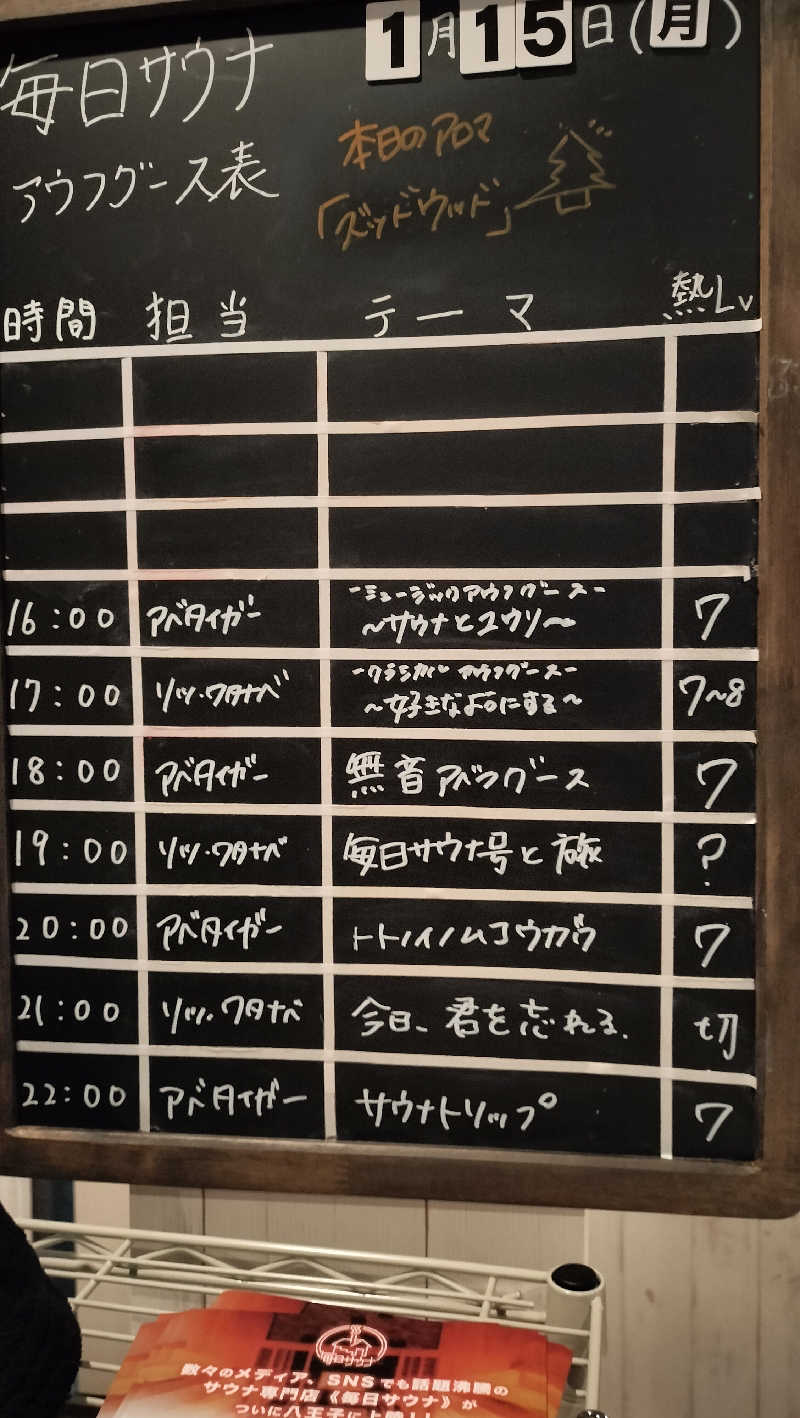 毎日サウナ
1月15日(月)
アウフグース表
本日のアロマ
「ズッドウッド」
時間 担当 テーマ 熱Lv
16:00 アベタイガー -ミュージックアウフグース- ~サウナとユウソ~ 7
17:00 リッツ・ワタナベ -クラシカルアウフグース- ~好きなようにする~ 7~8
18:00 アベタイガー 無音アベフグース 7
19:00 リッツ・ワタナベ 毎日サウナ号と旅 ?
20:00 アベタイガー トトノイノムコウガワ 7
21:00 リッツ・ワタナベ 今日、君を忘れる. 切
22:00 アベタイガー サウナトリップ 7
毎日サウナ
数々のメディア、SNSでも話題沸騰の
サウナ専門店《毎日サウナ》が
ついに八王子に上陸!!